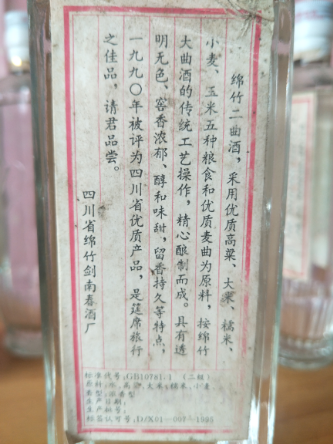 绵竹二曲酒，采用优质高粱、大米、糯米、
小麦、玉米五种粮食和优质麦曲为原料，按绵竹
大曲酒的传统工艺操作，精心酿制而成。具有透
明无色、窖香浓郁、醇和味甜，留香持久等特点，
一九九〇年被评为四川省优质产品，是筵席旅行
之佳品，请君品尝。
四川省绵竹剑南春酒厂
标准代号：GB10781·1 （二级）
原料：水、高粱、大米、糯米、小麦、
类型：浓香型
生产日期：
生产批号：
标签认可号：